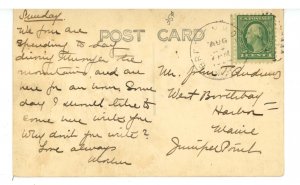 Sunday
We four are
spending to day
driving through the
mountains and are
here for an hour. Some
day I should like to
come here with you
Why don't you write?
Love always
Mother
POST CARD
AUG
Mr. John T. Andrews
West Boothbay
Harbor
Maine
Juniper Point